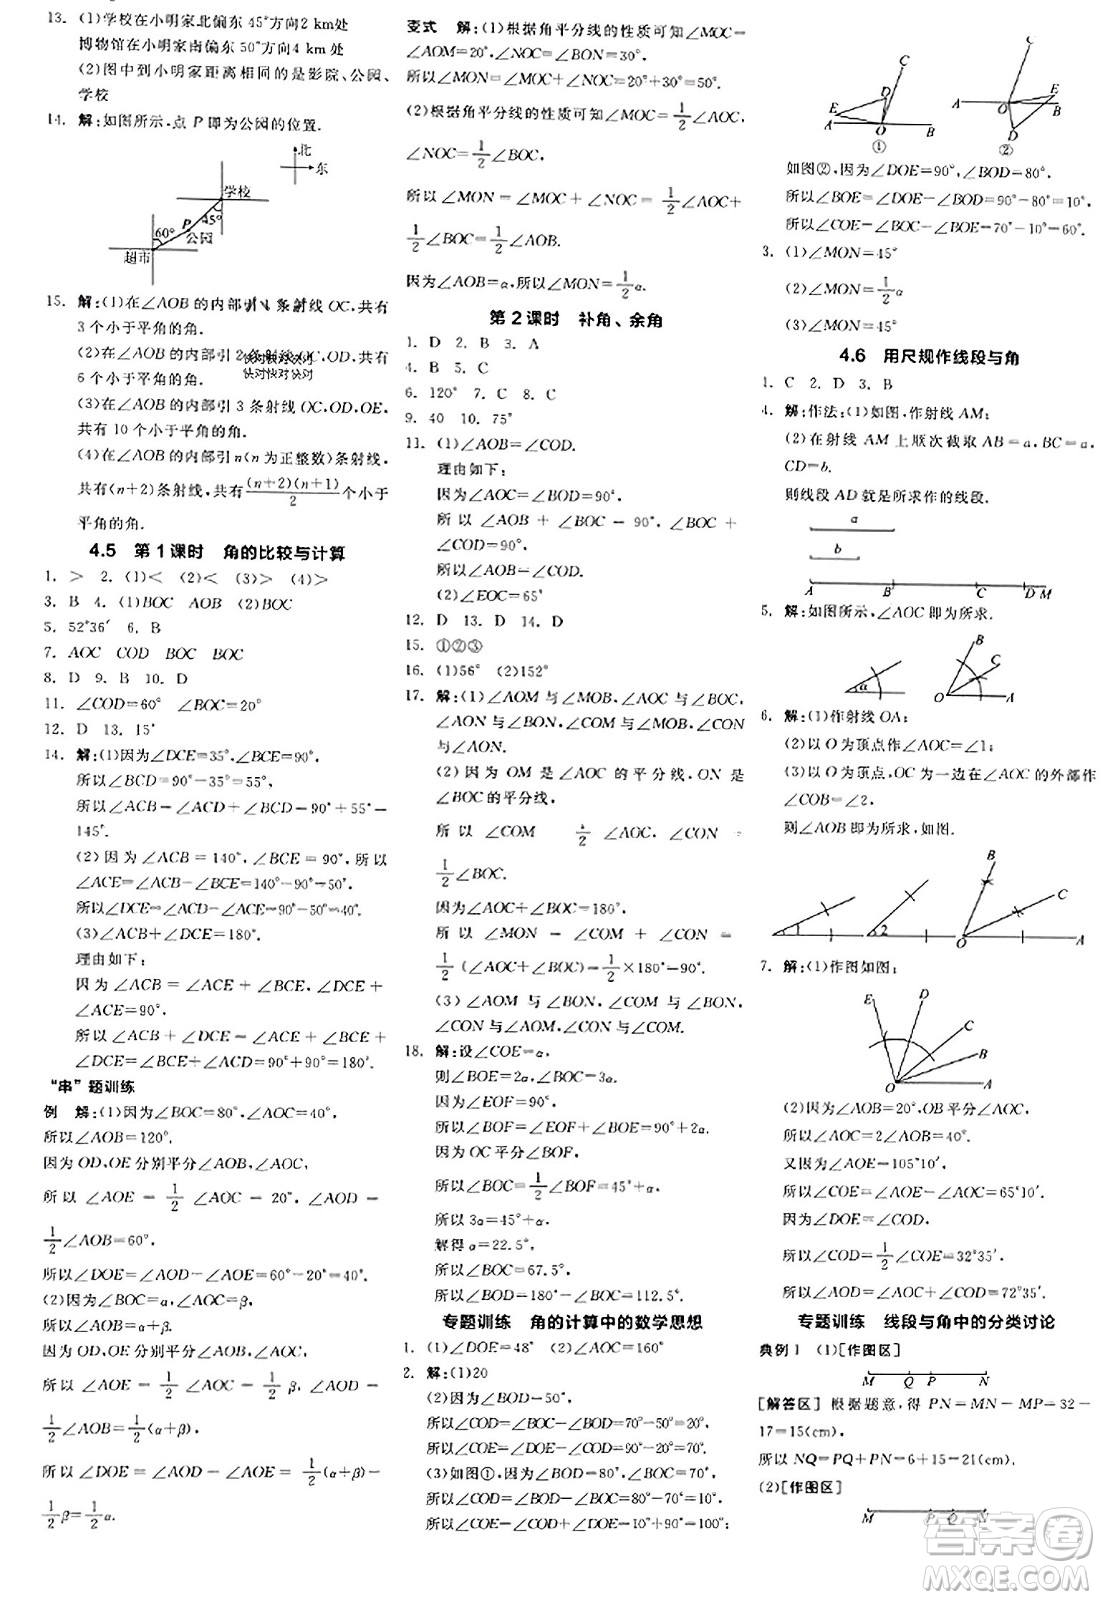 13. (1)学校在小明家北偏东 45°方向2 km处
博物馆在小明家南偏东 50°方向 4 km 处
(2)图中到小明家距离相同的是影院、公园、
学校
14. 解:如图所示,点 P 即为公园的位置.
北
东
学校
45°
P
60°
公园
超市
15. 解:(1)在∠AOB 的内部引 1 条射线 OC,共有
3 个小于平角的角.
(2)在∠AOB 的内部引 2 条射线 OC,OD,共有
快对快对快对
6 个小于平角的角.
快对快对快对
(3)在∠AOB 的内部引 3 条射线 OC,OD,OE,
共有 10 个小于平角的角.
(4)在∠AOB 的内部引 n(n 为正整数)条射线,
共有(n+2)条射线,共有(n+2)(n+1)/2个小于
平角的角.
4.5 第 1 课时 角的比较与计算
1. > 2. (1)< (2)< (3)> (4)>
3. B 4. (1)BOC AOB (2)BOC
5. 52°36′ 6. B
7. AOC COD BOC BOC
8. D 9. B 10. D
11. ∠COD=60° ∠BOC=20°
12. D 13. 15°
14. 解:(1)因为∠DCE=35°,∠BCE=90°,
所以∠BCD=90°-35°=55°,
所以∠ACB=∠ACD+∠BCD=90°+55°=
145°.
(2)因为∠ACB=140°,∠BCE=90°,所以
∠ACE=∠ACB-∠BCE=140°-90°=50°.
所以∠DCE=∠ACD-∠ACE=90°-50°=40°.
(3)∠ACB+∠DCE=180°.
理由如下:
因为∠ACB=∠ACE+∠BCE,∠DCE+
∠ACE=90°,
所以∠ACB+∠DCE=∠ACE+∠BCE+
∠DCE=∠BCE+∠ACD=90°+90°=180°.
“串”题训练
例 解:(1)因为∠BOC=80°,∠AOC=40°,
所以∠AOB=120°.
因为 OD,OE 分别平分∠AOB,∠AOC,
所以∠AOE=1/2∠AOC=20°,∠AOD=
1/2∠AOB=60°,
所以∠DOE=∠AOD-∠AOE=60°-20°=40°.
(2)因为∠BOC=α,∠AOC=β,
所以∠AOB=α+β.
因为 OD,OE 分别平分∠AOB,∠AOC,
所以∠AOE=1/2∠AOC=1/2β,∠AOD=
1/2∠AOB=1/2(α+β),
所以∠DOE=∠AOD-∠AOE=1/2(α+β)-
1/2β=1/2α.
变式 解:(1)根据角平分线的性质可知∠MOC=
∠AOM=20°,∠NOC=∠BON=30°.
所以∠MON=∠MOC+∠NOC=20°+30°=50°.
(2)根据角平分线的性质可知∠MOC=1/2∠AOC,
∠NOC=1/2∠BOC,
所以∠MON=∠MOC+∠NOC=1/2∠AOC+
1/2∠BOC=1/2∠AOB.
因为∠AOB=α,所以∠MON=1/2α.
第 2 课时 补角、余角
1. D 2. B 3. A
4. B 5. C
6. 120° 7. C 8. C
9. 40 10. 75°
11. (1)∠AOB=∠COD.
理由如下:
因为∠AOC=∠BOD=90°,
所以∠AOB+∠BOC=90°,∠BOC+
∠COD=90°,
所以∠AOB=∠COD.
(2)∠EOC=65°
12. D 13. D 14. D
15. ①②③
16. (1)56° (2)152°
17. 解:(1)∠AOM 与∠MOB,∠AOC 与∠BOC,
∠AON与∠BON,∠COM与∠MOB,∠CON
与∠AON.
(2)因为 OM 是∠AOC 的平分线,ON 是
∠BOC 的平分线,
所以∠COM 1/2∠AOC,∠CON =
1/2∠BOC.
因为∠AOC+∠BOC=180°,
所以∠MON=∠COM+∠CON=
1/2(∠AOC+∠BOC)=1/2×180°=90°.
(3)∠AOM 与∠BON,∠COM 与∠BON,
∠CON与∠AOM,∠COM与∠CON.
18. 解:设∠COE=α,
则∠BOE=2α,∠BOC=3α.
因为∠EOF=90°,
所以∠BOF=∠EOF+∠BOE=90°+2α.
因为 OC 平分∠BOF,
所以∠BOC=1/2∠BOF=45°+α,
所以 3α=45°+α.
解得 α=22.5°,
所以∠BOC=67.5°,
所以∠BOD=180°-∠BOC=112.5°.
专题训练 角的计算中的数学思想
1. (1)∠DOE=48° (2)∠AOC=160°
2. 解:(1)20
(2)因为∠BOD=50°,
所以∠COD=∠BOC-∠BOD=70°-50°=20°,
所以∠COE=∠DOE-∠COD=90°-20°=70°.
(3)如图①,因为∠BOD=80°,∠BOC=70°,
所以∠COD=∠BOD-∠BOC=80°-70°=10°,
所以∠COE=∠COD+∠DOE=10°+90°=100°;
C
D
E
A
O
B
①
C
A
O
E
B
D
②
如图②,因为∠DOE=90°,∠BOD=80°,
所以∠BOE=∠DOE-∠BOD=90°-80°=10°,
所以∠COE=∠BOC-∠BOE=70°-10°=60°.
3. (1)∠MON=45°
(2)∠MON=1/2α
(3)∠MON=45°
4.6 用尺规作线段与角
1. C 2. D 3. B
4. 解:作法:(1)如图,作射线 AM;
(2)在射线 AM 上顺次截取 AB=a,BC=a,
CD=b.
则线段 AD 就是所求作的线段.
a
b
A B C D M
5. 解:如图所示,∠AOC 即为所求.
α
B
C
O
A
6. 解:(1)作射线 OA;
(2)以 O 为顶点作∠AOC=∠1;
(3)以 O 为顶点,OC 为一边在∠AOC 的外部作
∠COB=∠2,
则∠AOB 即为所求,如图.
B
C
1
2
O
A
7. 解:(1)作图如图:
E
D
C
B
O
A
(2)因为∠AOB=20°,OB平分∠AOC,
所以∠AOC=2∠AOB=40°.
又因为∠AOE=105°10′,
所以∠COE=∠AOE-∠AOC=65°10′.
因为∠DOE=∠COD,
所以∠COD=1/2∠COE=32°35′,
所以∠AOD=∠AOC+∠COD=72°35′.
专题训练 线段与角中的分类讨论
典例 1 (1)[作图区]
M Q P N
[解答区] 根据题意,得 PN=MN-MP=32-
17=15(cm),
所以 NQ=PQ+PN=6+15=21(cm).
(2)[作图区]
M P Q N
答案卷
MXQE.COM